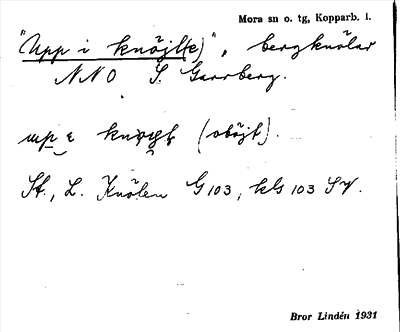 Mora sn o. tg, Kopparb. l.
"Upp i knöjl(e)", bergknölar
NNO S. Garrberg.
(oböjt).
St., L. Knölen G103, kls 103 SV.
Bror Lindén 1931